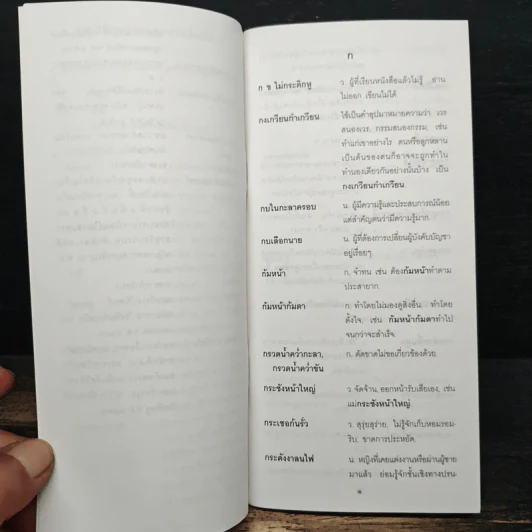 ก
ก ข ไม่กระดิกหู ว. ผู้ที่เรียนหนังสือแล้วไม่รู้ อ่าน
ไม่ออก เขียนไม่ได้
กงเกวียนกำเกวียน ใช้เป็นคำอุปมาหมายความว่า เวร
สนองเวร, กรรมสนองกรรม, เช่น
ทำแก่เขาอย่างไร ตนหรือลูกหลาน
เป็นต้นของตนก็อาจจะถูกทำใน
ทำนองเดียวกันอย่างนั้นบ้าง เป็น
กงเกวียนกำเกวียน
กบในกะลาครอบ น. ผู้มีความรู้และประสบการณ์น้อย
แต่สำคัญตนว่ามีความรู้มาก.
กบเลือกนาย น. ผู้ที่ต้องการเปลี่ยนผู้บังคับบัญชา
อยู่เรื่อยๆ.
ก้มหน้า ก. จำทน เช่น ต้องก้มหน้าทำตาม
ประสายาก.
ก้มหน้าก้มตา ก. ทำโดยไม่มองดูสิ่งอื่น, ทำโดย
ตั้งใจ, เช่น ก้มหน้าก้มตาทำไป
จนกว่าจะสำเร็จ.
กรวดน้ำคว่ำกะลา, ก. ตัดขาดไม่ขอเกี่ยวข้องด้วย.
กรวดน้ำคว่ำขัน
กระชังหน้าใหญ่ ว. จัดจ้าน, ออกหน้ารับเสียเอง, เช่น
แม่กระชังหน้าใหญ่.
กระเชอก้นรั่ว ว. สุรุ่ยสุร่าย, ไม่รู้จักเก็บหอมรอม-
ริบ, ขาดการประหยัด.
กระดังงาลนไฟ น. หญิงที่เคยแต่งงานหรือผ่านผู้ชาย
มาแล้ว ย่อมรู้จักชั้นเชิงทางปรน-